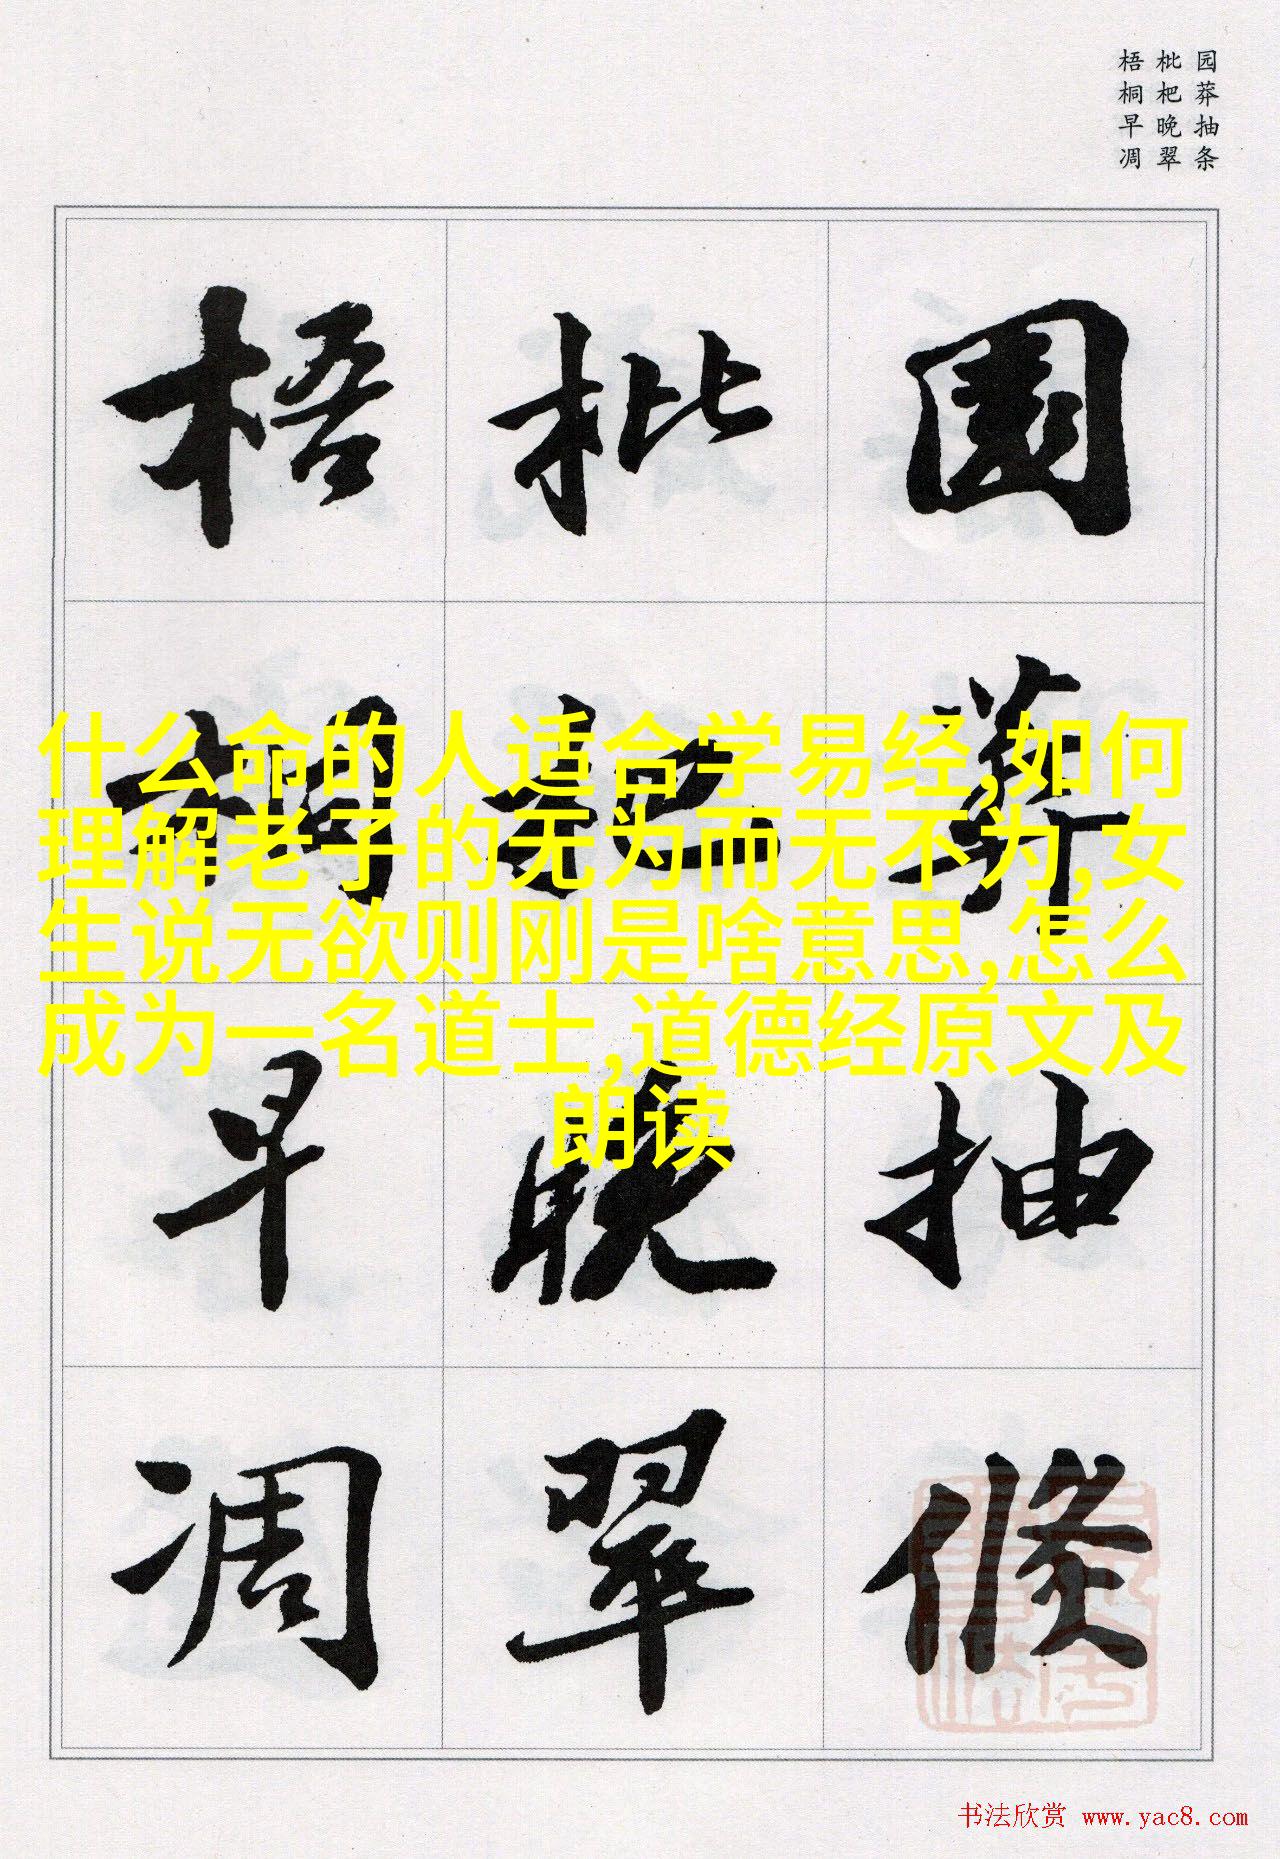 园莽抽条
枇杷晚翠
梧桐早凋
園莽抽條
枇杷晚翠
梧桐早凋
什么命的人适合学易经,如何
理解老子的无为而无不为,女
生说无欲则刚是啥意思,怎么
成为一名道士,道德经原文及
朗读
书法欣赏 www.yac8.com